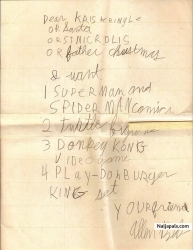 Dear KRIS KRINGLE
OR Santa
OR STNICROLIS
OR father christmas
I want
1 SUPERMAN and
SPIDERMAN comics
2 turtle
3 DONKEY KONG
video game
4 PLAY-DOH BURGER
KING set
YOUR friend
Allen
Naijapals.com